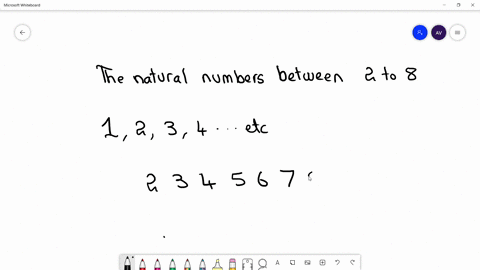 Microsoft Whiteboard
AV
The natural numbers between 2 to 8
1, 2, 3, 4 ... etc
2 3 4 5 6 7